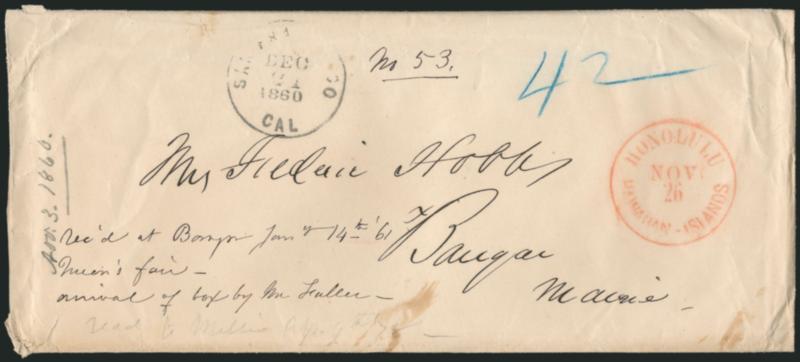 SAN FRANCISCO
DEC
21
1860
CAL
No 53.
42
HONOLULU
NOV
26
HAWAIIAN-ISLANDS
Nov. 3. 1860.
Mrs Frederic Hobbs
Bangor
Maine
rec'd at Bangor Jany 14th '61
Queen's fair
arrival of box by Mr Fuller
read to